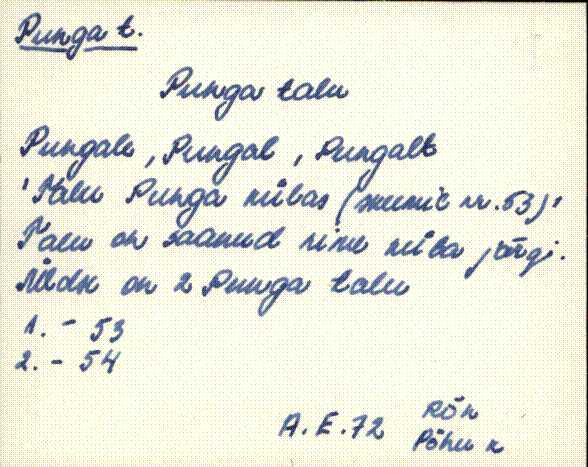 Punga t.
Punga talu
Pungale, Pungal, Pungalt
'Talu Punga külas (skeemil nr. 53)'
Talu on saanud nime küla järgi.
Üldse on 2 Punga talu
1. - 53
2. - 54
A. E. 72 Rõn
Põhu k